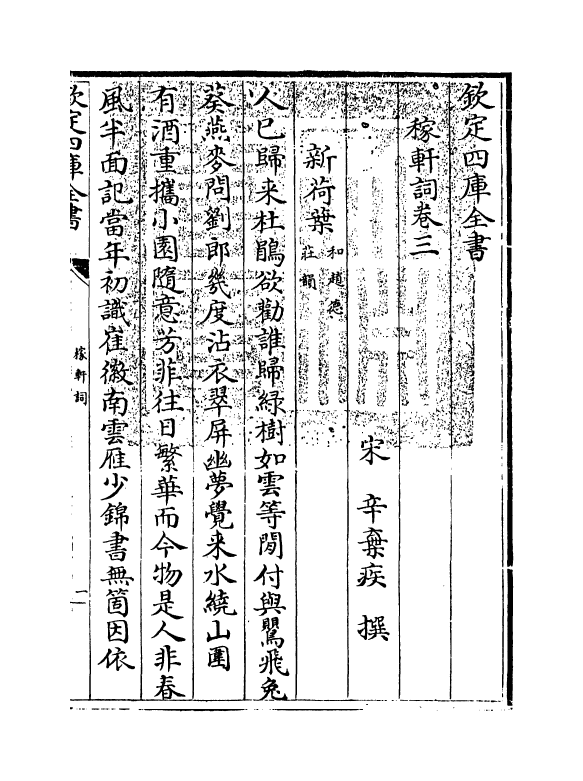 欽定四庫全書
稼軒詞卷三
宋 辛棄疾 撰
新荷葉和趙德莊韻
人已歸来杜鵑欲勸誰歸綠樹如雲等閒付與鸎飛兔
葵燕麥問劉郎幾度沾衣翠屏幽夢覺来水繞山圍
有酒重攜小園隨意芳菲往日繁華而今物是人非春
風半面記當年初識崔徽南雲雁少錦書無箇因依
欽定四庫全書
稼軒詞